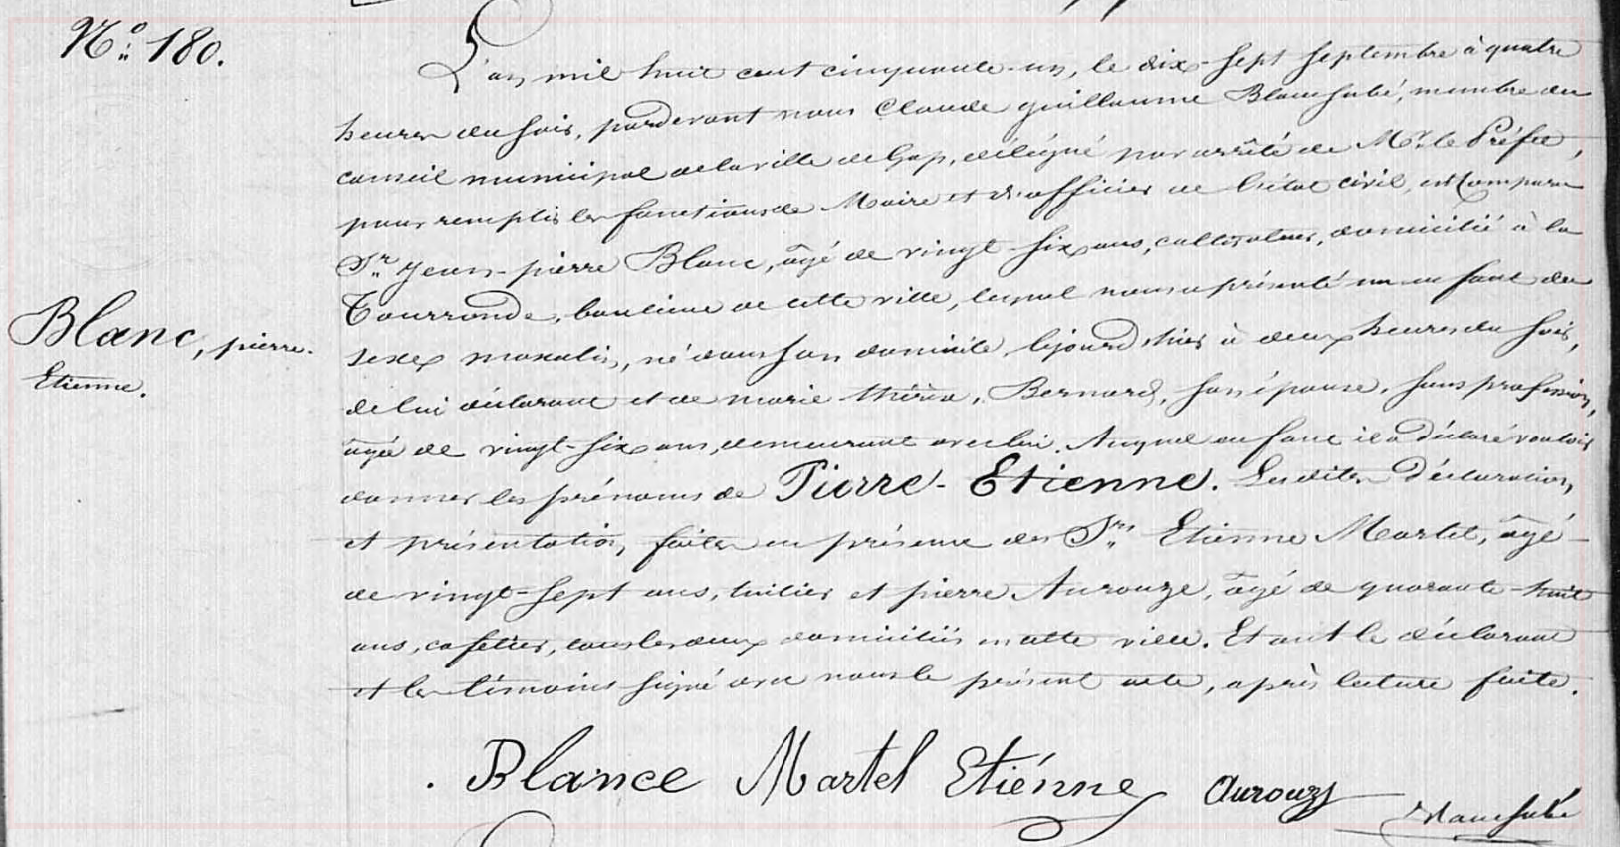 N.º 180.
L'an mil huit cent cinquante-un, le dix-sept septembre à quatre
heures du soir, pardevant nous Claude Guillaume Blanchubé, membre du
conseil municipal de la ville de Gap, délégué par arrêté de Mr. le Préfet,
pour remplir les fonctions de Maire et d'officier de l'état civil, est comparu
Sr. Jean-pierre Blanc, âgé de vingt-six ans, cultivateur, domicilié à la
Tourronde, banlieue de cette ville, lequel nous a présenté un enfant du
Blanc, pierre-
Etienne.
sexe masculin, né dans son domicile, le jour d'hier à deux heures du soir,
de lui déclarant et de marie-thérèse, Bernard, son épouse, sans profession,
âgée de vingt-six ans, demeurant avec lui. Auquel enfant il a déclaré vouloir
donner les prénoms de Pierre-Etienne. Lesdites Déclaration
et présentation, faites en présence des Srs. Etienne Martel, âgé
de vingt-sept ans, tuilier et pierre Aurouze, âgé de quarante-huit
ans, cafetier, tous les deux domiciliés en cette ville. Et ont le déclarant
et les témoins signé avec nous le présent acte, après lecture faite.
Blance Martel Etiénne Aurouze